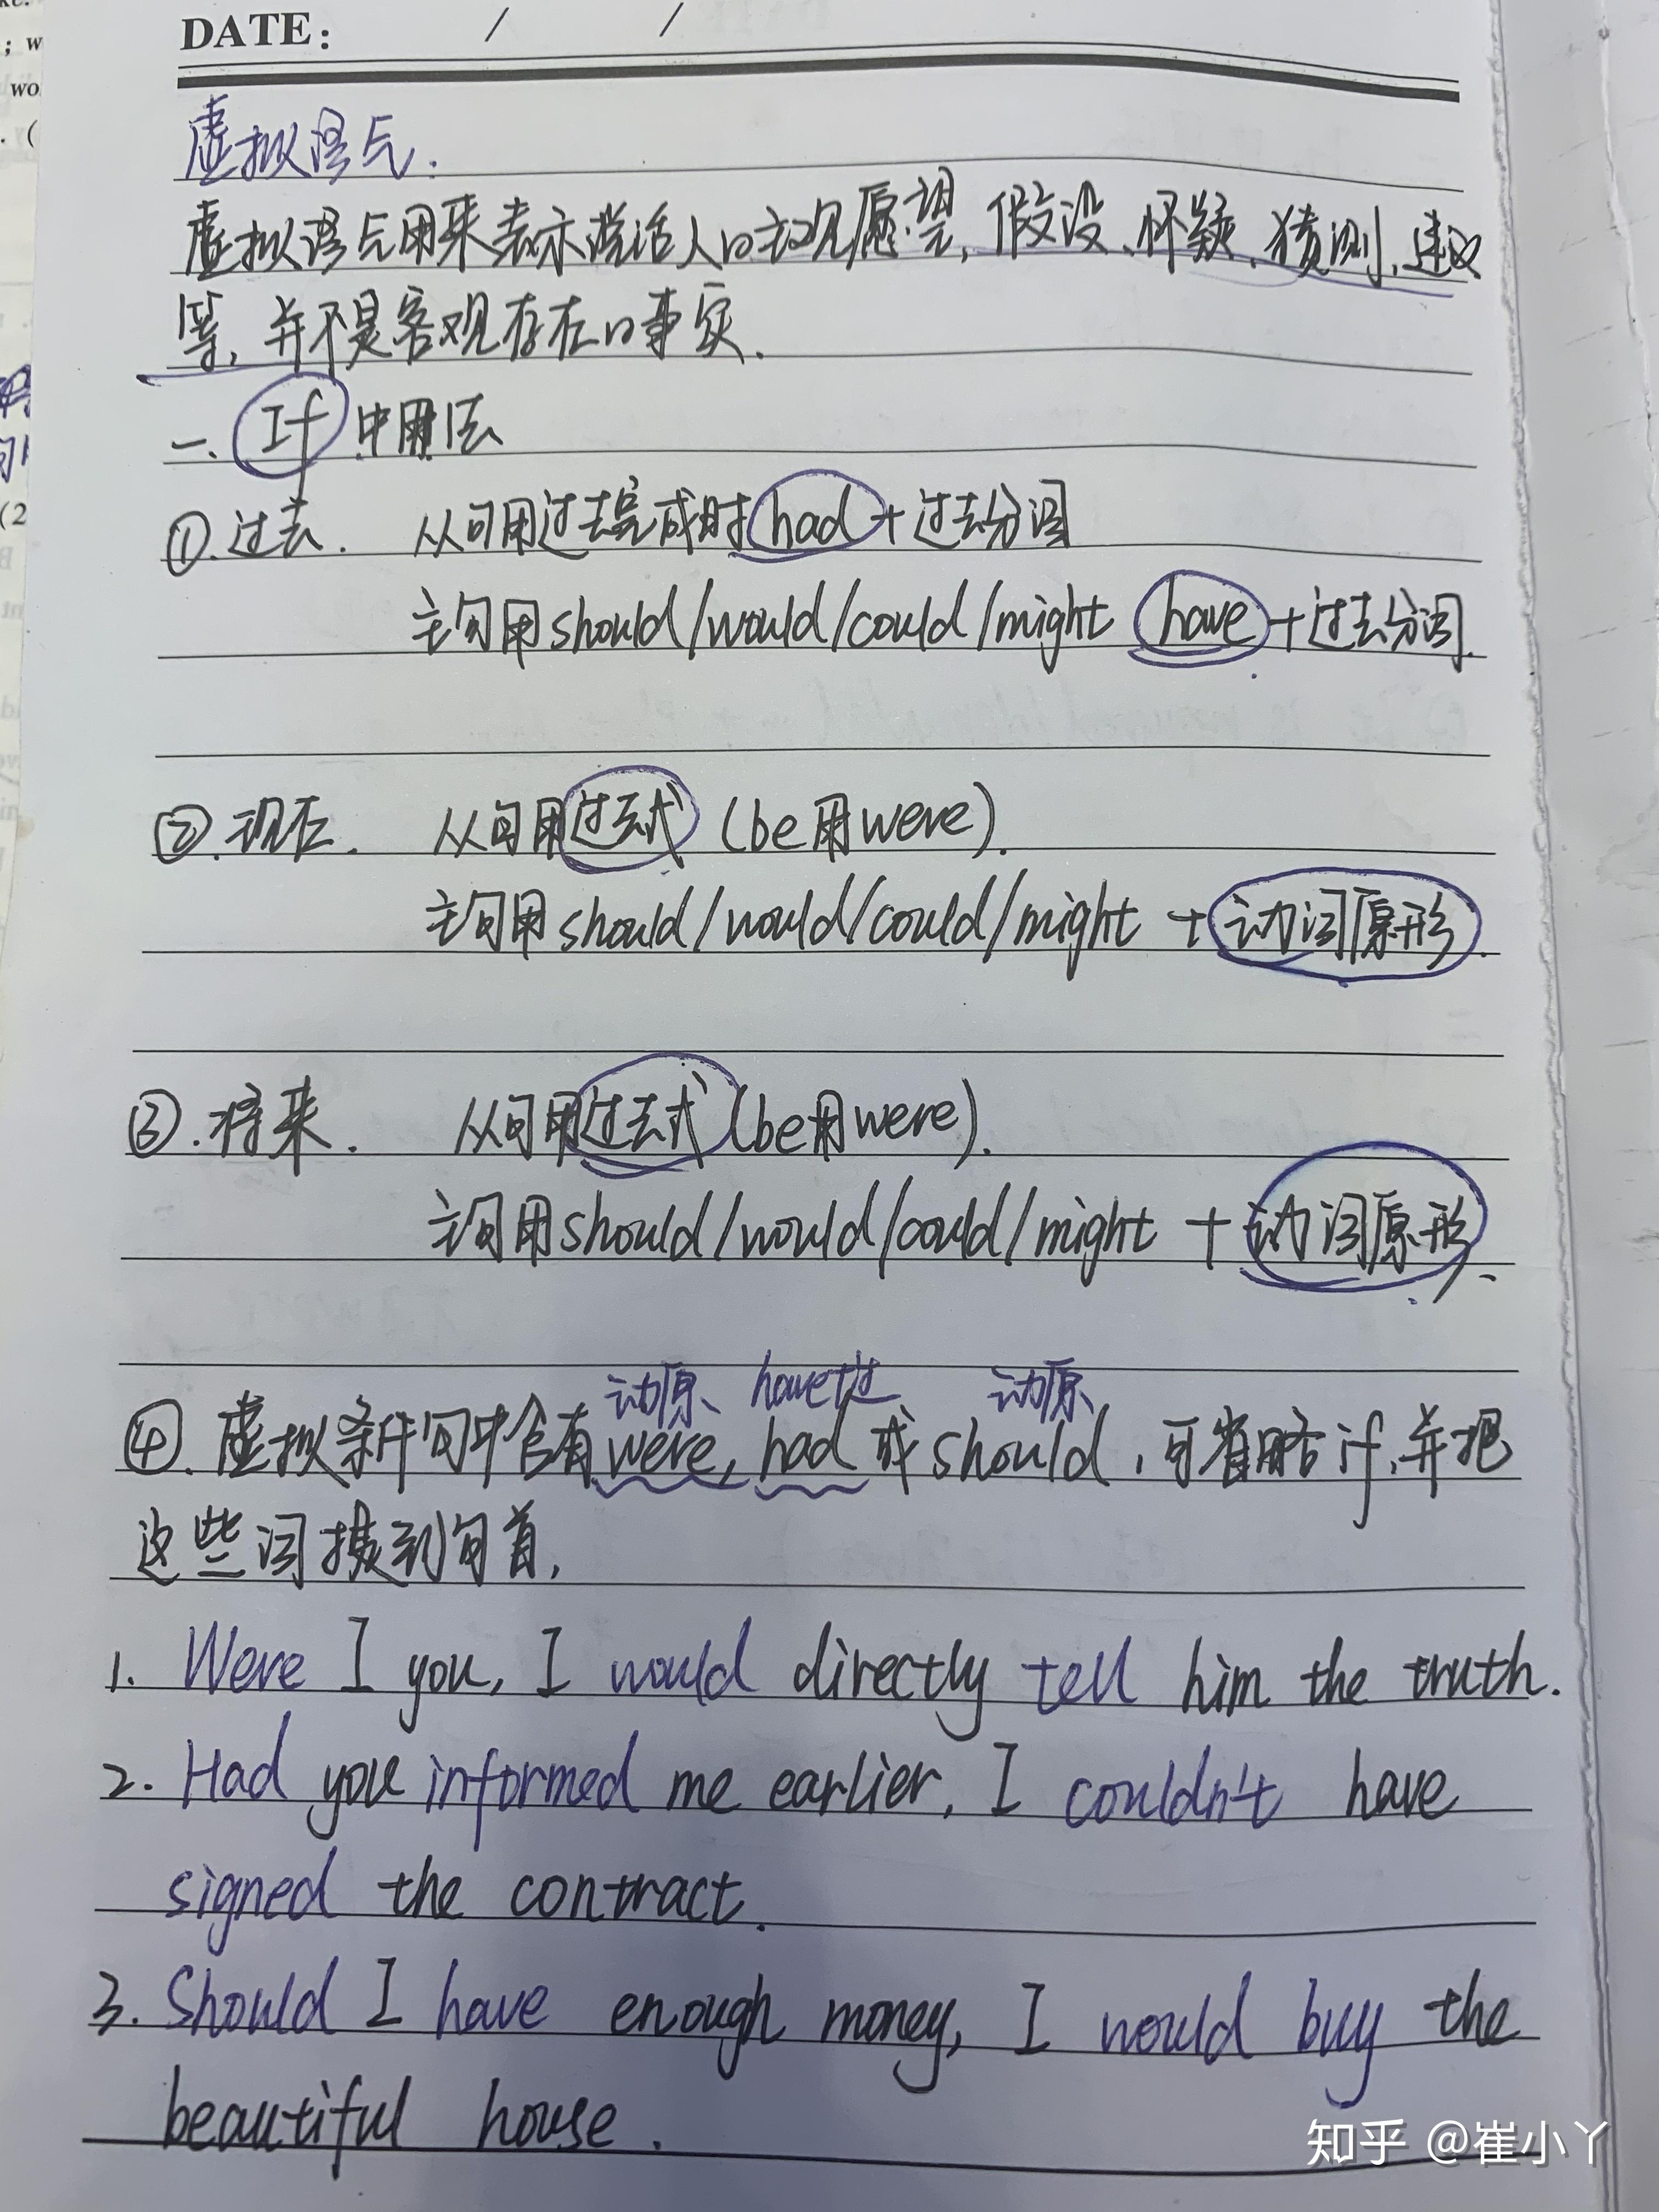 DATE: / /
虚拟语气.
虚拟语气用来表示说话人的主观愿望,假设、怀疑、猜测、建议
等,并不是客观存在的事实.
一、If 中用法
①.过去. 从句用过去完成时 had + 过去分词
主句用 should/would/could/might have + 过去分词.
②.现在. 从句用过去式 (be用were).
主句用 should/would/could/might + 动词原形.
③.将来. 从句用过去式 (be用were).
主句用 should/would/could/might + 动词原形.
动原、 have+过 动原
④.虚拟条件句中含有were, had 或 should,可省略 if,并把
这些词提到句首,
1. Were I you, I would directly tell him the truth.
2. Had you informed me earlier, I couldn't have
signed the contract.
3. Should I have enough money, I would buy the
beautiful house.
知乎 @崔小丫